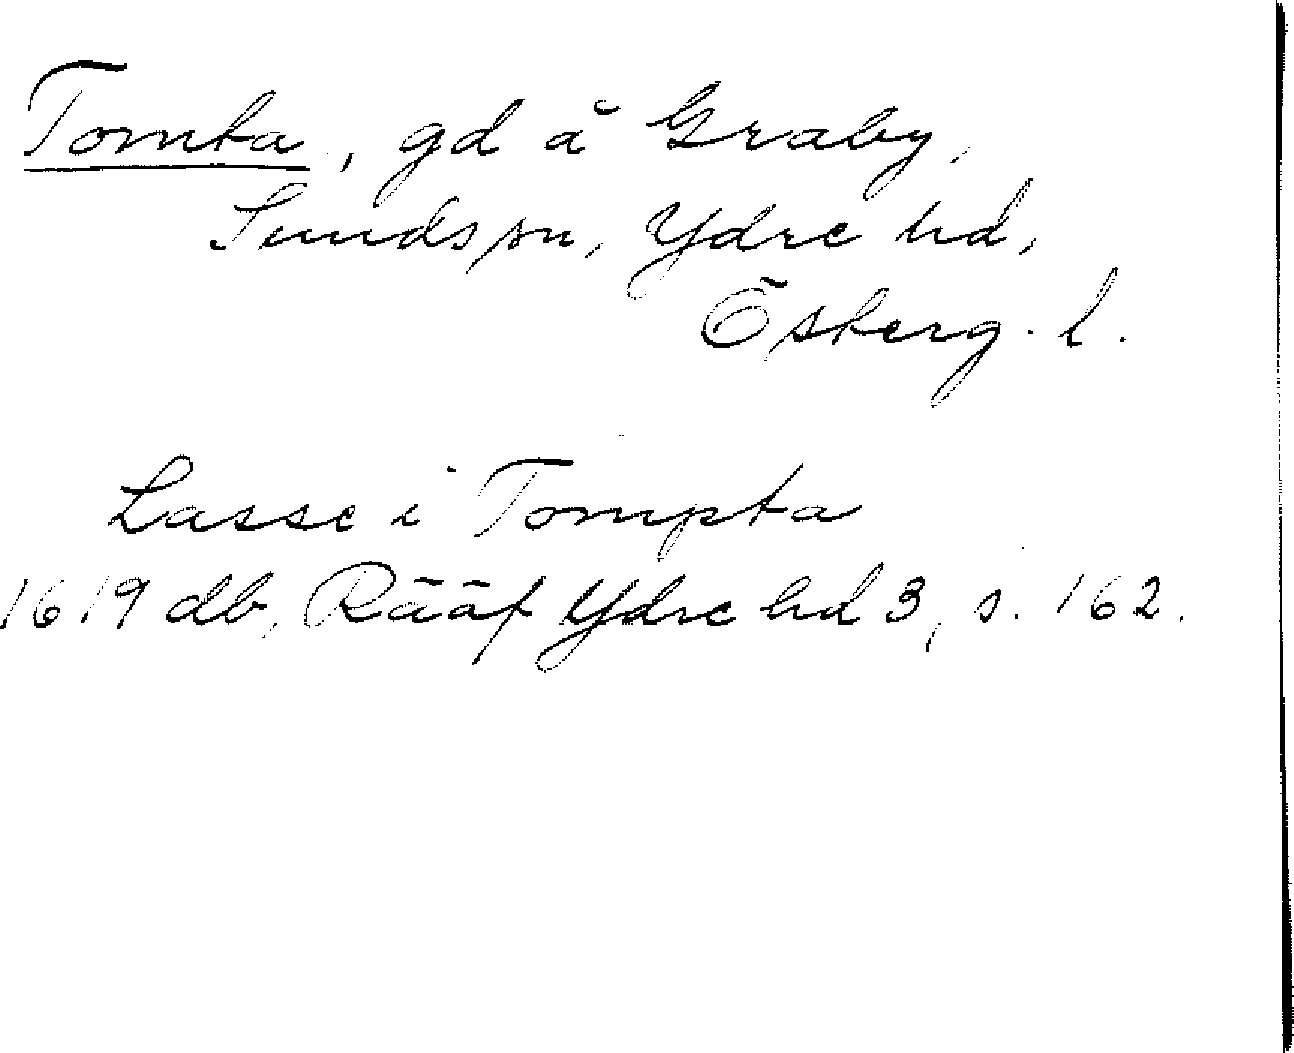 Tomta, gd å Graby,
Sunds sn, Ydre hd,
Österg. l.
Lasse i Tompta
1619 db, Rääf Ydre hd 3, s. 162.